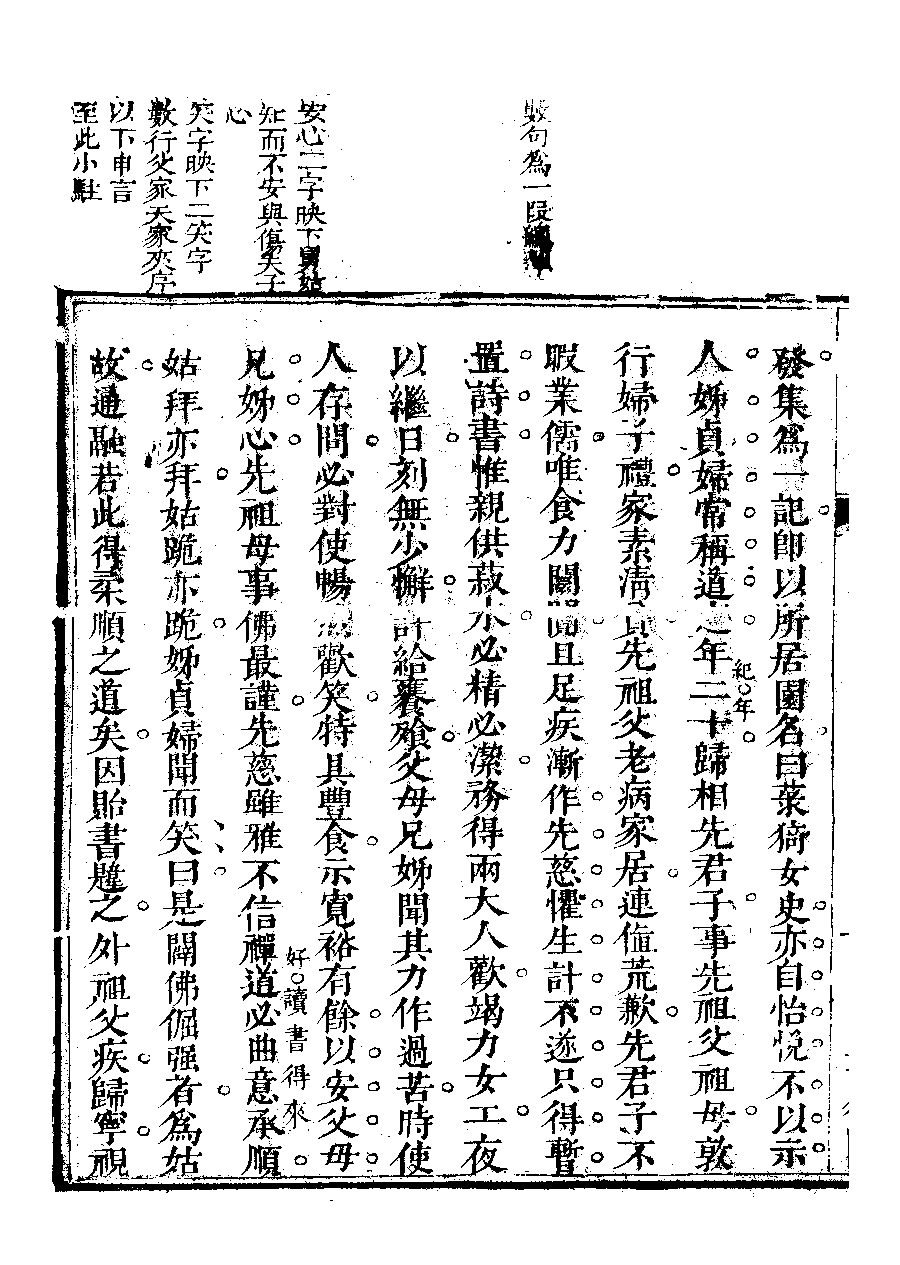 數句為一段
安心二字映下舅姑
知而不安與傷夫子
心
笑字映下二笑字
數行父家天家夾序
以下申言
至此小駐
發集為一記即以所居園名曰菉猗女史亦自怡悅不以示
人姊貞婦常稱道之年二十歸相先君子事先祖父祖母敦
紀年
行婦子禮家素清貧先祖父老病家居連値荒歉先君子不
暇業儒唯食力闤闠而且足疾漸作先慈懼生計不遂只得暫
置詩書惟親供菽水必精必潔務得兩大人歡竭力女工夜
以繼日刻無少懈計給饔飱父母兄姊聞其力作過苦時使
人存問必對使暢歡笑特具豐食示寬裕有餘以安父母
兄姊心先祖母事佛最謹先慈雖雅不信禪道必曲意承順
好讀書得來
姑拜亦拜姑跪亦跪姊貞婦聞而笑曰是闢佛倔强者為姑
故通融若此得柔順之道矣因貽書韙之外祖父疾歸寧視